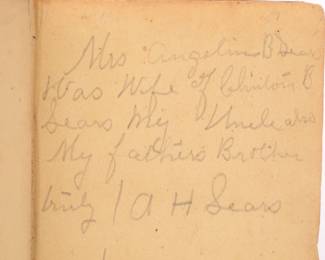 Mrs Angeline B Sears
Was Wife of Chilton B
Sears My Uncle also
My fathers Brother
truly / A H Sears